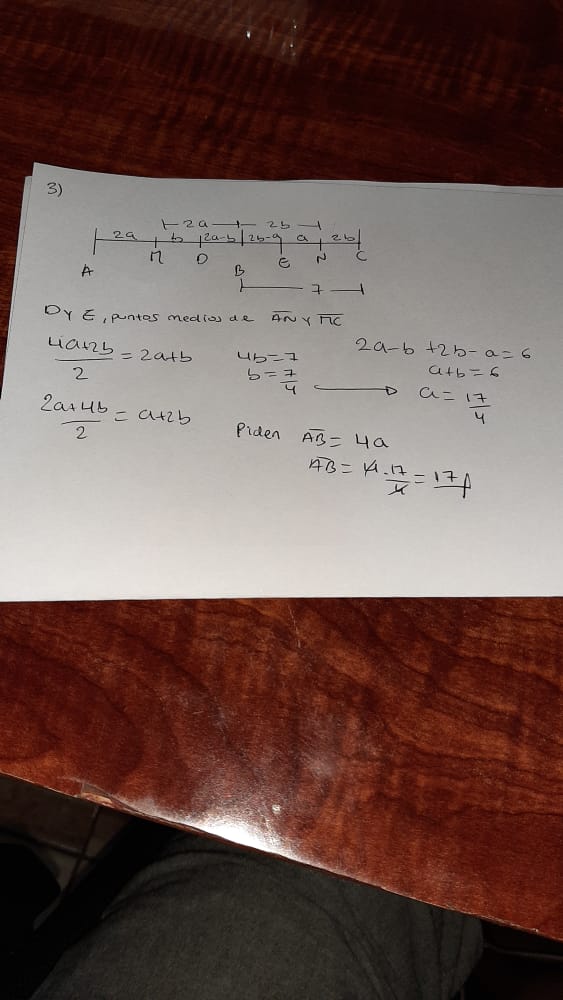 3)
2a 2b
2a b 2a-b 2b-a a 2b
A M D B E N C
7
D y E, puntos medios de AN y MC
4a+2b/2 = 2a+b 4b=7 2a-b+2b-a=6
b=7/4 a+b=6
a=17/4
2a+4b/2 = a+2b Piden AB = 4a
AB = 4.17/4 = 17